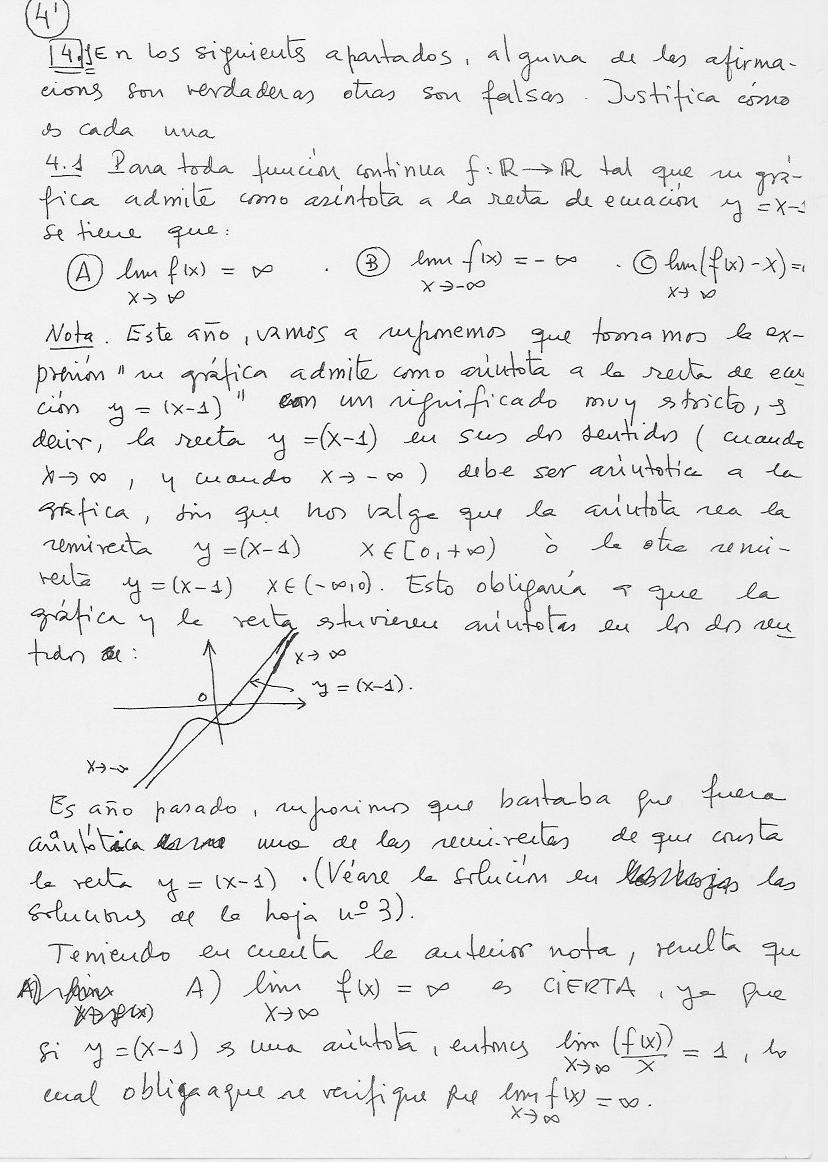 4'
4. En los siguients apartados, alguna de las afirma-
cions son verdaderas otras son falsas. Justifica cómo
es cada una
4.1 Para toda función continua f: ℝ → ℝ tal que su grá-
fica admite como asíntota a la recta de ecuación y = x-1
se tiene que:
Ⓐ lim f(x) = ∞ . Ⓑ lim f(x) = -∞ . Ⓒ lim (f(x) - x) =
x→∞ x→-∞ x→∞
Nota. Este año, vamos a suponemos que tomamos la ex-
presión "su gráfica admite como asíntota a la recta de ecua
ción y = (x-1)" con un significado muy stricto, es
decir, la recta y = (x-1) en sus dos sentidos (cuando
x→∞, y cuando x→-∞) debe ser asintótica a la
gráfica, sin que nos valga que la asíntota sea la
semirecta y = (x-1) x∈[0,+∞) ò la otra semi-
recta y = (x-1) x∈(-∞,0). Esto obligaría a que la
gráfica y la recta estuviesen asíntotas en los dos sen
tidos:
x→∞
0
y = (x-1).
x→-∞
Es año pasado, suposimos que bastaba que fuera
asintótica una de las semi-rectas de que consta
la recta y = (x-1). (Véase la solución en las
soluciones de la hoja nº 3).
Teniendo en cuenta la anterior nota, resulta que
A) lim f(x) = ∞ es CIERTA, ya que
x→∞
si y = (x-1) es una asíntota, entonces lim (f(x))/x = 1, lo
x→∞
cual obliga a que se verifique que lim f(x) = ∞.
x→∞